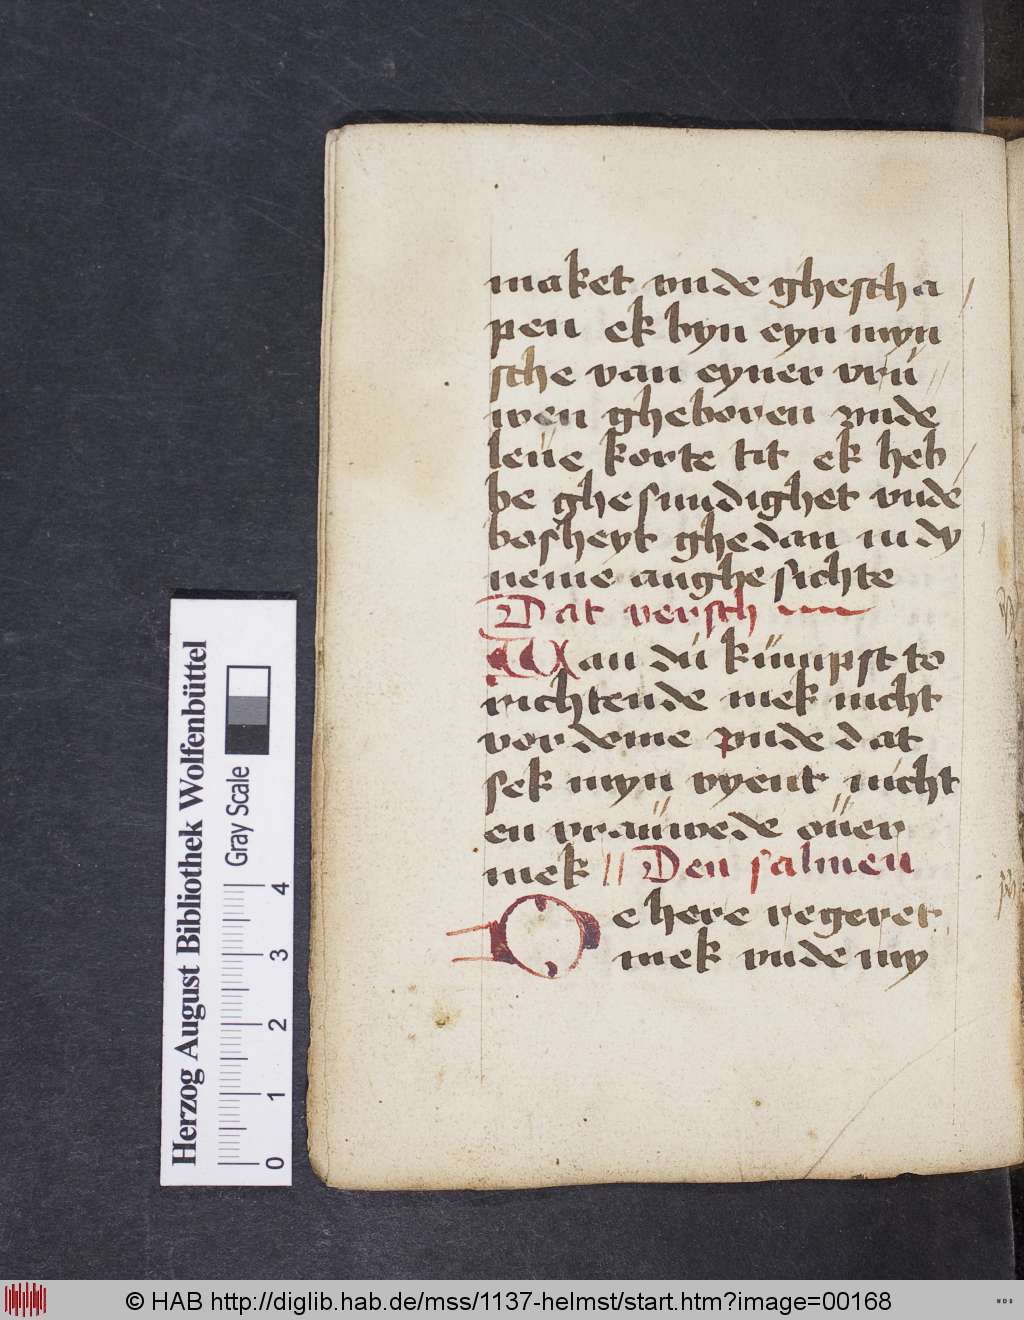 maket vnde ghescha /
pen ek byn eyn myn
sche van eyner vrü //
wen gheboren vnde
leüe korte tit ek heb /
be ghesundighet vnde
bosheyt ghedan in dy
neme anghesichte
Dat versch
Wan dü kümpst to
richtende mek nicht
vordeme vnde dat
sek myn vyent nicht
en vraüwede oüer
mek // Den salmen
De here regeret
mek vnde my
Herzog August Bibliothek Wolfenbüttel
Gray Scale
0 1 2 3 4
© HAB http://diglib.hab.de/mss/1137-helmst/start.htm?image=00168